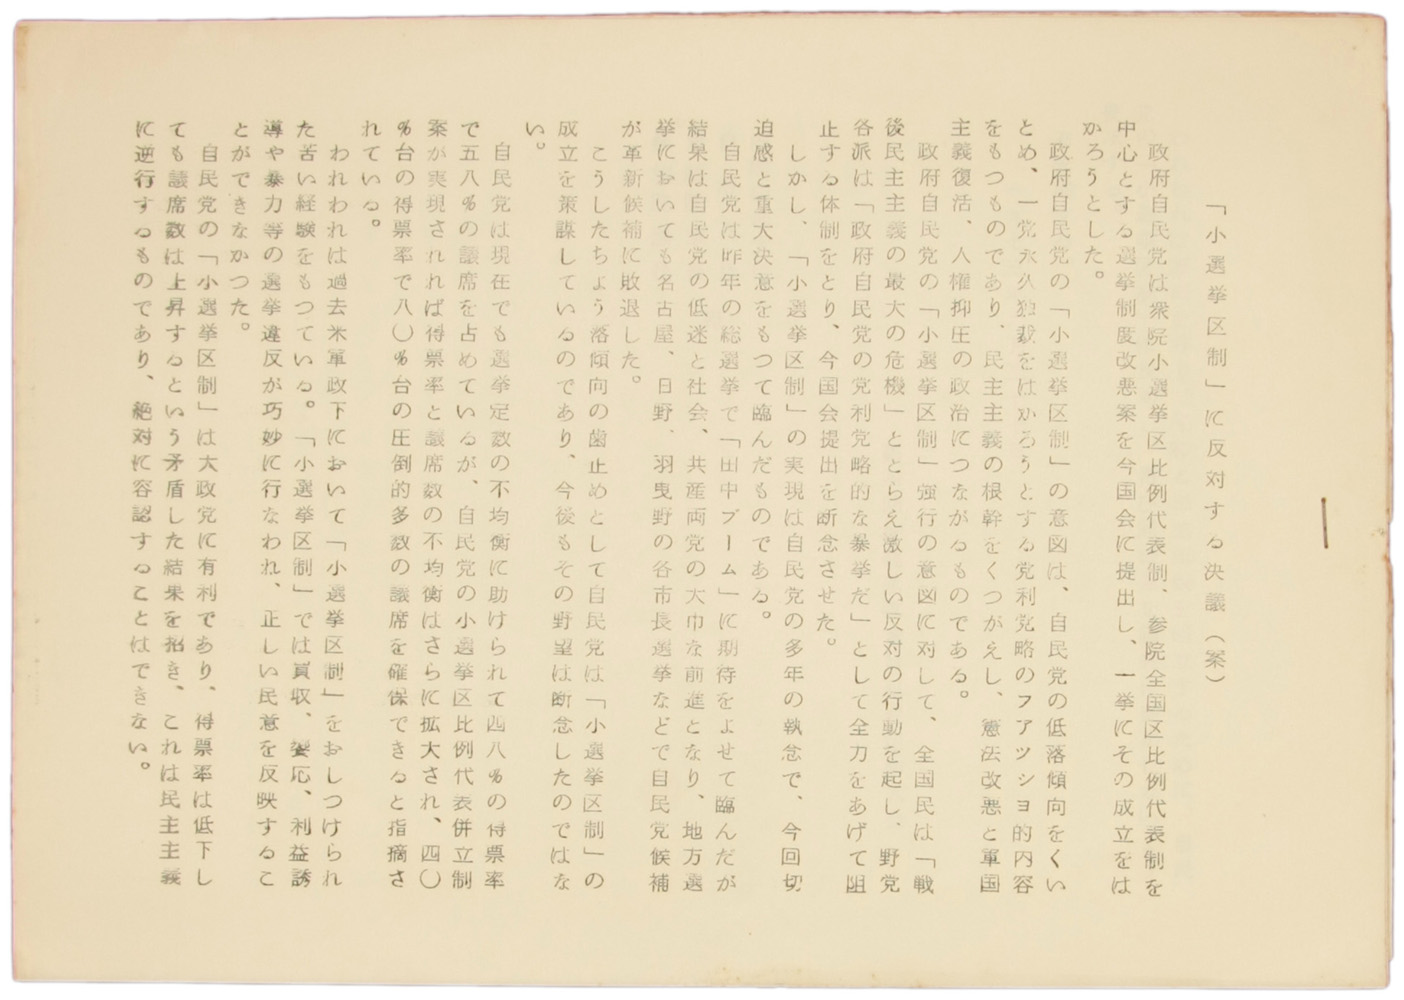 「小選挙区制」に反対する決議（案）
政府自民党は衆院小選挙区比例代表制、参院全国区比例代表制を
中心とする選挙制度改悪案を今国会に提出し、一挙にその成立をは
かろうとした。
政府自民党の「小選挙区制」の意図は、自民党の低落傾向をくい
とめ、一党永久独裁をはかろうとする党利党略のフアツシヨ的内容
をもつものであり、民主主義の根幹をくつがえし、憲法改悪と軍国
主義復活、人権抑圧の政治につながるものである。
政府自民党の「小選挙区制」強行の意図に対して、全国民は「戦
後民主主義の最大の危機」ととらえ激しい反対の行動を起し、野党
各派は「政府自民党の党利党略的な暴挙だ」として全力をあげて阻
止する体制をとり、今国会提出を断念させた。
しかし、「小選挙区制」の実現は自民党の多年の執念で、今回切
迫感と重大決意をもつて臨んだものである。
自民党は昨年の総選挙で「田中ブーム」に期待をよせて臨んだが
結果は自民党の低迷と社会、共産両党の大巾な前進となり、地方選
挙においても名古屋、日野、羽曳野の各市長選挙などで自民党候補
が革新候補に敗退した。
こうしたちょう落傾向の歯止めとして自民党は「小選挙区制」の
成立を策謀しているのであり、今後もその野望は断念したのではな
い。
自民党は現在でも選挙定数の不均衡に助けられて四八％の得票率
で五八％の議席を占めているが、自民党の小選挙区比例代表併立制
案が実現されれば得票率と議席数の不均衡はさらに拡大され、四〇
％台の得票率で八〇％台の圧倒的多数の議席を確保できると指摘さ
れている。
われわれは過去米軍政下において「小選挙区制」をおしつけられ
た苦い経験をもつている。「小選挙区制」では買収、饗応、利益誘
導や暴力等の選挙違反が巧妙に行なわれ、正しい民意を反映するこ
とができなかつた。
自民党の「小選挙区制」は大政党に有利であり、得票率は低下し
ても議席数は上昇するという矛盾した結果を招き、これは民主主義
に逆行するものであり、絶対に容認することはできない。